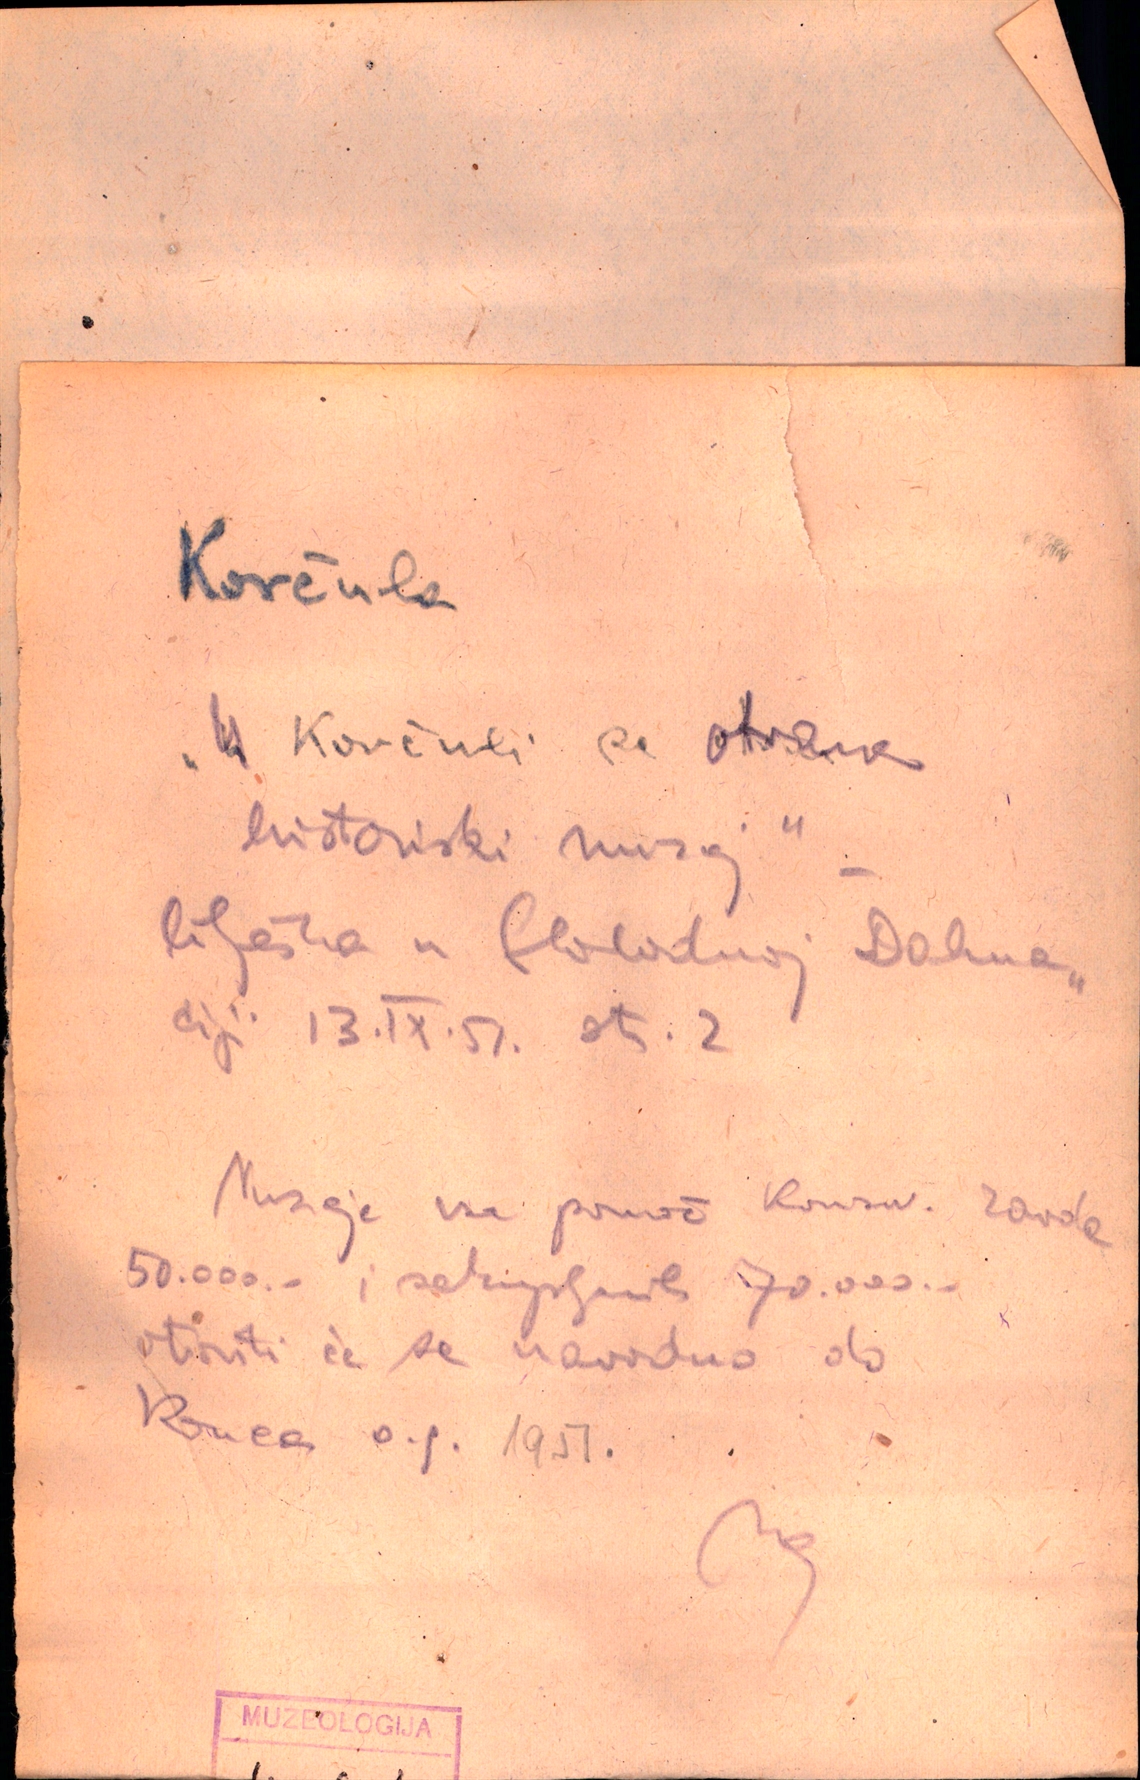 Korčula
„U Korčuli se otvara
historiski muzej" –
bilješka u Slobodnoj Dalma„
ciji 13.IX.51. str. 2
Muzeje uz pomoć Konzerv. zavoda
50.000.- i sakupljenih 70.000.-
otvoriti će se navodno do
Konca o.g. 1951.
MUZEOLOGIJA